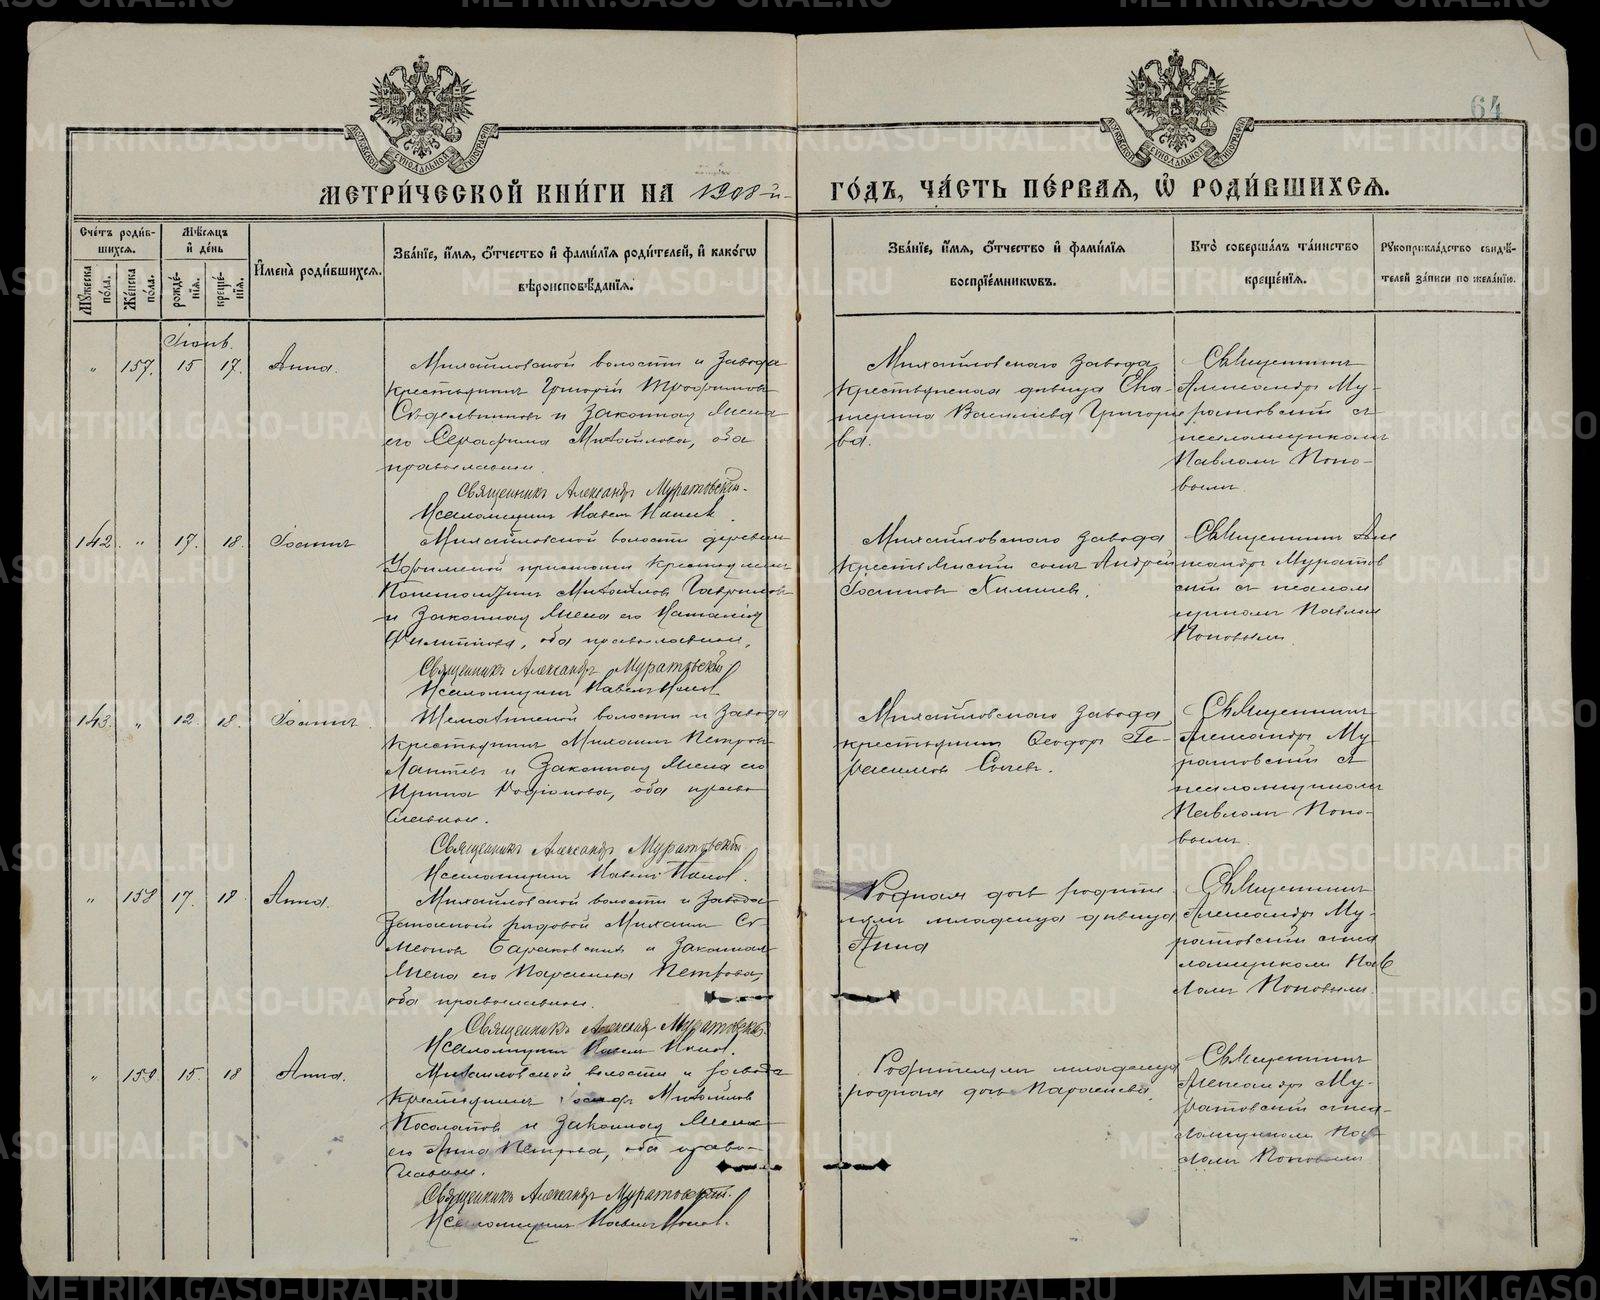 64
МЕТРИ́ЧЕСКОЙ КНИ́ГИ НА 1908-й ГО́ДЪ, ЧА́СТЬ ПЕ́РВАѦ, Ѽ РОДИ́ВШИХСѦ.
Сче́тъ роди́вшихсѧ.
Мꙋ́жеска по́ла.
Же́нска по́ла.
Мѣ́сѧцъ и́ де́нь
рожде́нїѧ.
креще́нїѧ.
И҆мена̀ роди́вшихсѧ.
Зва́нїе, и҆́мѧ, ѻ҆́тчество и҆ фами́лїѧ роди́телей, и҆ како́гѡ
вѣроисповѣ́данїѧ.
Зва́нїе, и҆́мѧ, ѻ҆́тчество и҆ фами́лїѧ
воспрїе́мникѡвъ.
Кто̀ соверша́лъ та́инство
креще́нїѧ.
Рꙋкоприкла́дство свидѣ́-
телей за́писи по жела́нїю.
Іюнь.
" 157. 15 17. Анна.
Михайловской волости и завода
крестьянинъ Григорій Трофимовъ
и законная жена
его Серафима Михайлова, оба
православные.
Священникъ Александръ Муратовскій.
Псаломщикъ Павелъ Поповъ.
Михайловскаго завода
крестьянская дѣвица Ека-
терина Васильева Григорье
ва.
Священникъ
Александръ Му-
ратовскій съ
псаломщикомъ
Павломъ Попо-
вымъ.
142. " 17. 18. Іоаннъ
Михайловской волости деревни
Уфимской пристани крестьянинъ
Михайловъ Гавриловъ
и законная жена его Наталія
Филиппова, оба православные.
Священникъ Александръ Муратовскій
Псаломщикъ Павелъ Поповъ
Михайловскаго завода
крестьянскій сынъ Андрей
Іоанновъ Химичевъ.
Священникъ Але
ксандръ Муратов
скій съ псалом
щикомъ Павломъ
Поповымъ.
143. " 12. 18. Іоаннъ.
Шемахинской волости и завода
крестьянинъ Михаилъ Петровъ
Лаптевъ и законная жена его
Ирина Родіонова, оба право
славные.
Священникъ Александръ Муратовскій
Псаломщикъ Павелъ Поповъ.
Михайловскаго завода
крестьянинъ Ѳеодоръ Ге-
расимовъ Сычевъ.
Священникъ
Александръ Му-
ратовскій съ
псаломщикомъ
Павломъ Попо-
вымъ.
" 158 17. 18 Анна.
Михайловской волости и завода
запасной рядовой Михаилъ Си
меоновъ и законная
жена его Параскева Петрова,
оба православные.
Священникъ Александръ Муратовскій
Псаломщикъ Павелъ Поповъ.
Родная дочь родите
лямъ младенца дѣвица
Анна
Священникъ
Александръ Му-
ратовскій съ пса
ломщикомъ Пав
ломъ Поповымъ.
" 159 15. 18 Анна.
Михайловской волости и завода
крестьянинъ Михайловъ
и законная жена
его Анна Петрова, оба право-
славные.
Священникъ Александръ Муратовскій.
Псаломщикъ Павелъ Поповъ.
Родителямъ младенца
родная дочь Параскева.
Священникъ
Александръ Му-
ратовскій съ пса-
ломщикомъ Пав
ломъ Поповымъ
METRIKI.GASO-URAL.RU